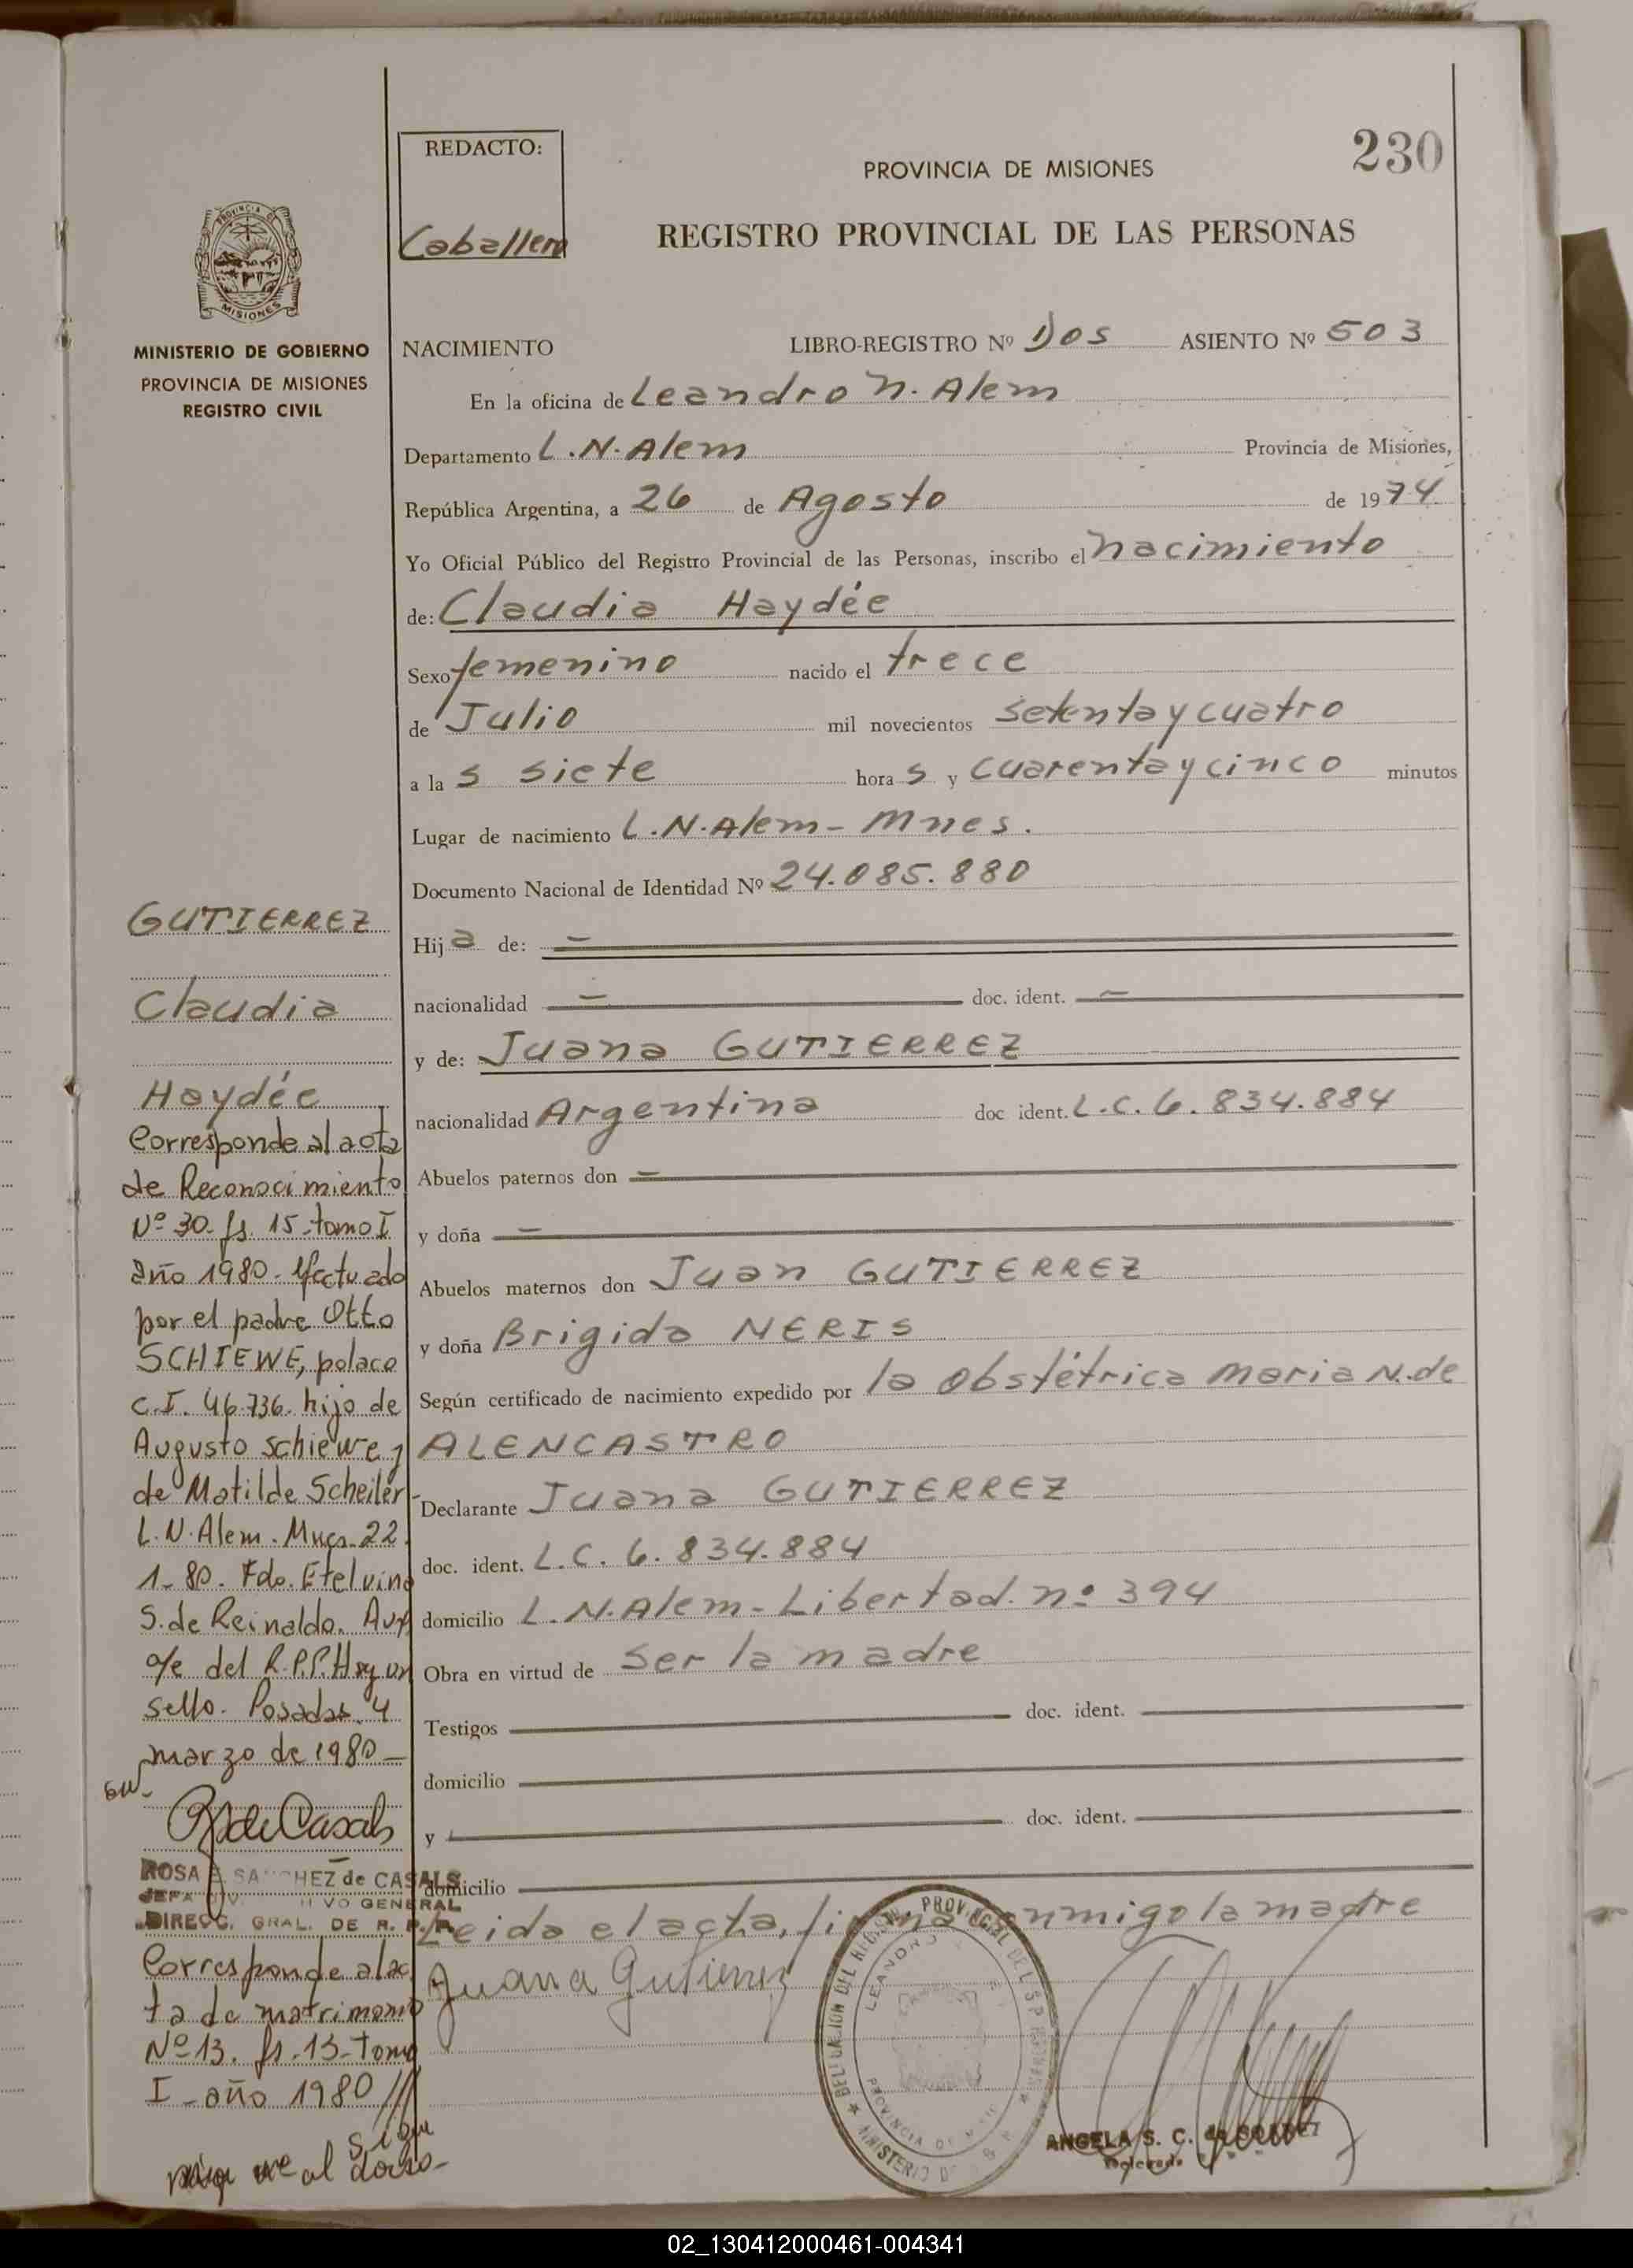 230
REDACTO:
Caballero
PROVINCIA DE MISIONES
REGISTRO PROVINCIAL DE LAS PERSONAS
PROVINCIA DE
MISIONES
MINISTERIO DE GOBIERNO
PROVINCIA DE MISIONES
REGISTRO CIVIL
NACIMIENTO LIBRO-REGISTRO Nº Dos ASIENTO Nº 503
En la oficina de Leandro N. Alem
Departamento L.N.Alem Provincia de Misiones,
República Argentina, a 26 de Agosto de 1974
Yo Oficial Público del Registro Provincial de las Personas, inscribo el nacimiento
de: Claudia Haydée
Sexo femenino nacido el trece
de Julio mil novecientos setenta y cuatro
a las siete horas y cuarenta y cinco minutos
Lugar de nacimiento L.N.Alem - Mnes.
Documento Nacional de Identidad Nº 24.085.880
Hija de: –
nacionalidad – doc. ident. –
y de: Juana GUTIERREZ
nacionalidad Argentina doc ident. L.C. 6.834.884
Abuelos paternos don –
y doña –
Abuelos maternos don Juan GUTIERREZ
y doña Brigida NERIS
Según certificado de nacimiento expedido por la obstétrica Maria N. de
ALENCASTRO
Declarante Juana GUTIERREZ
doc. ident. L.C. 6.834.884
domicilio L.N.Alem - Libertad. nº 394
Obra en virtud de ser la madre
Testigos doc. ident.
domicilio
y doc. ident.
domicilio
Leida el acta, firma conmigo la madre
Juana Gutierrez
ANGELA S. C. de
GUTIERREZ
Claudia
Haydée
Corresponde al acta
de Reconocimiento
Nº 30. fs. 15. tomo I
año 1980. efectuado
por el padre Otto
SCHIEWE, polaco
C.I. 46.736. hijo de
Augusto Schiewe y
de Matilde Scheiler
L.N.Alem. Mnes. 22.
1. 80. Fdo. Etelvina
S. de Reinaldo. Aux
a/c del R.P.P. Hay un
sello. Posadas, 4
marzo de 1980 –
RS de Casals
ROSA E. SANCHEZ de CASALS
JEFA DIV. GENERAL
DIRECC. GRAL. DE R. P. P.
Corresponde al ac
ta de matrimonio
Nº 13. fs. 13 - Tomo
I - año 1980 ///
sigue
al dorso -
02_130412000461-004341